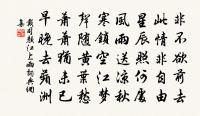 非不欲前去
此情非自由
星辰照何處
風雨送涼秋
寒鎖空江夢
聲隨黃葉愁
蕭蕭猶未已
早晚去蘋洲
戴司顏江上雨詞典網
集